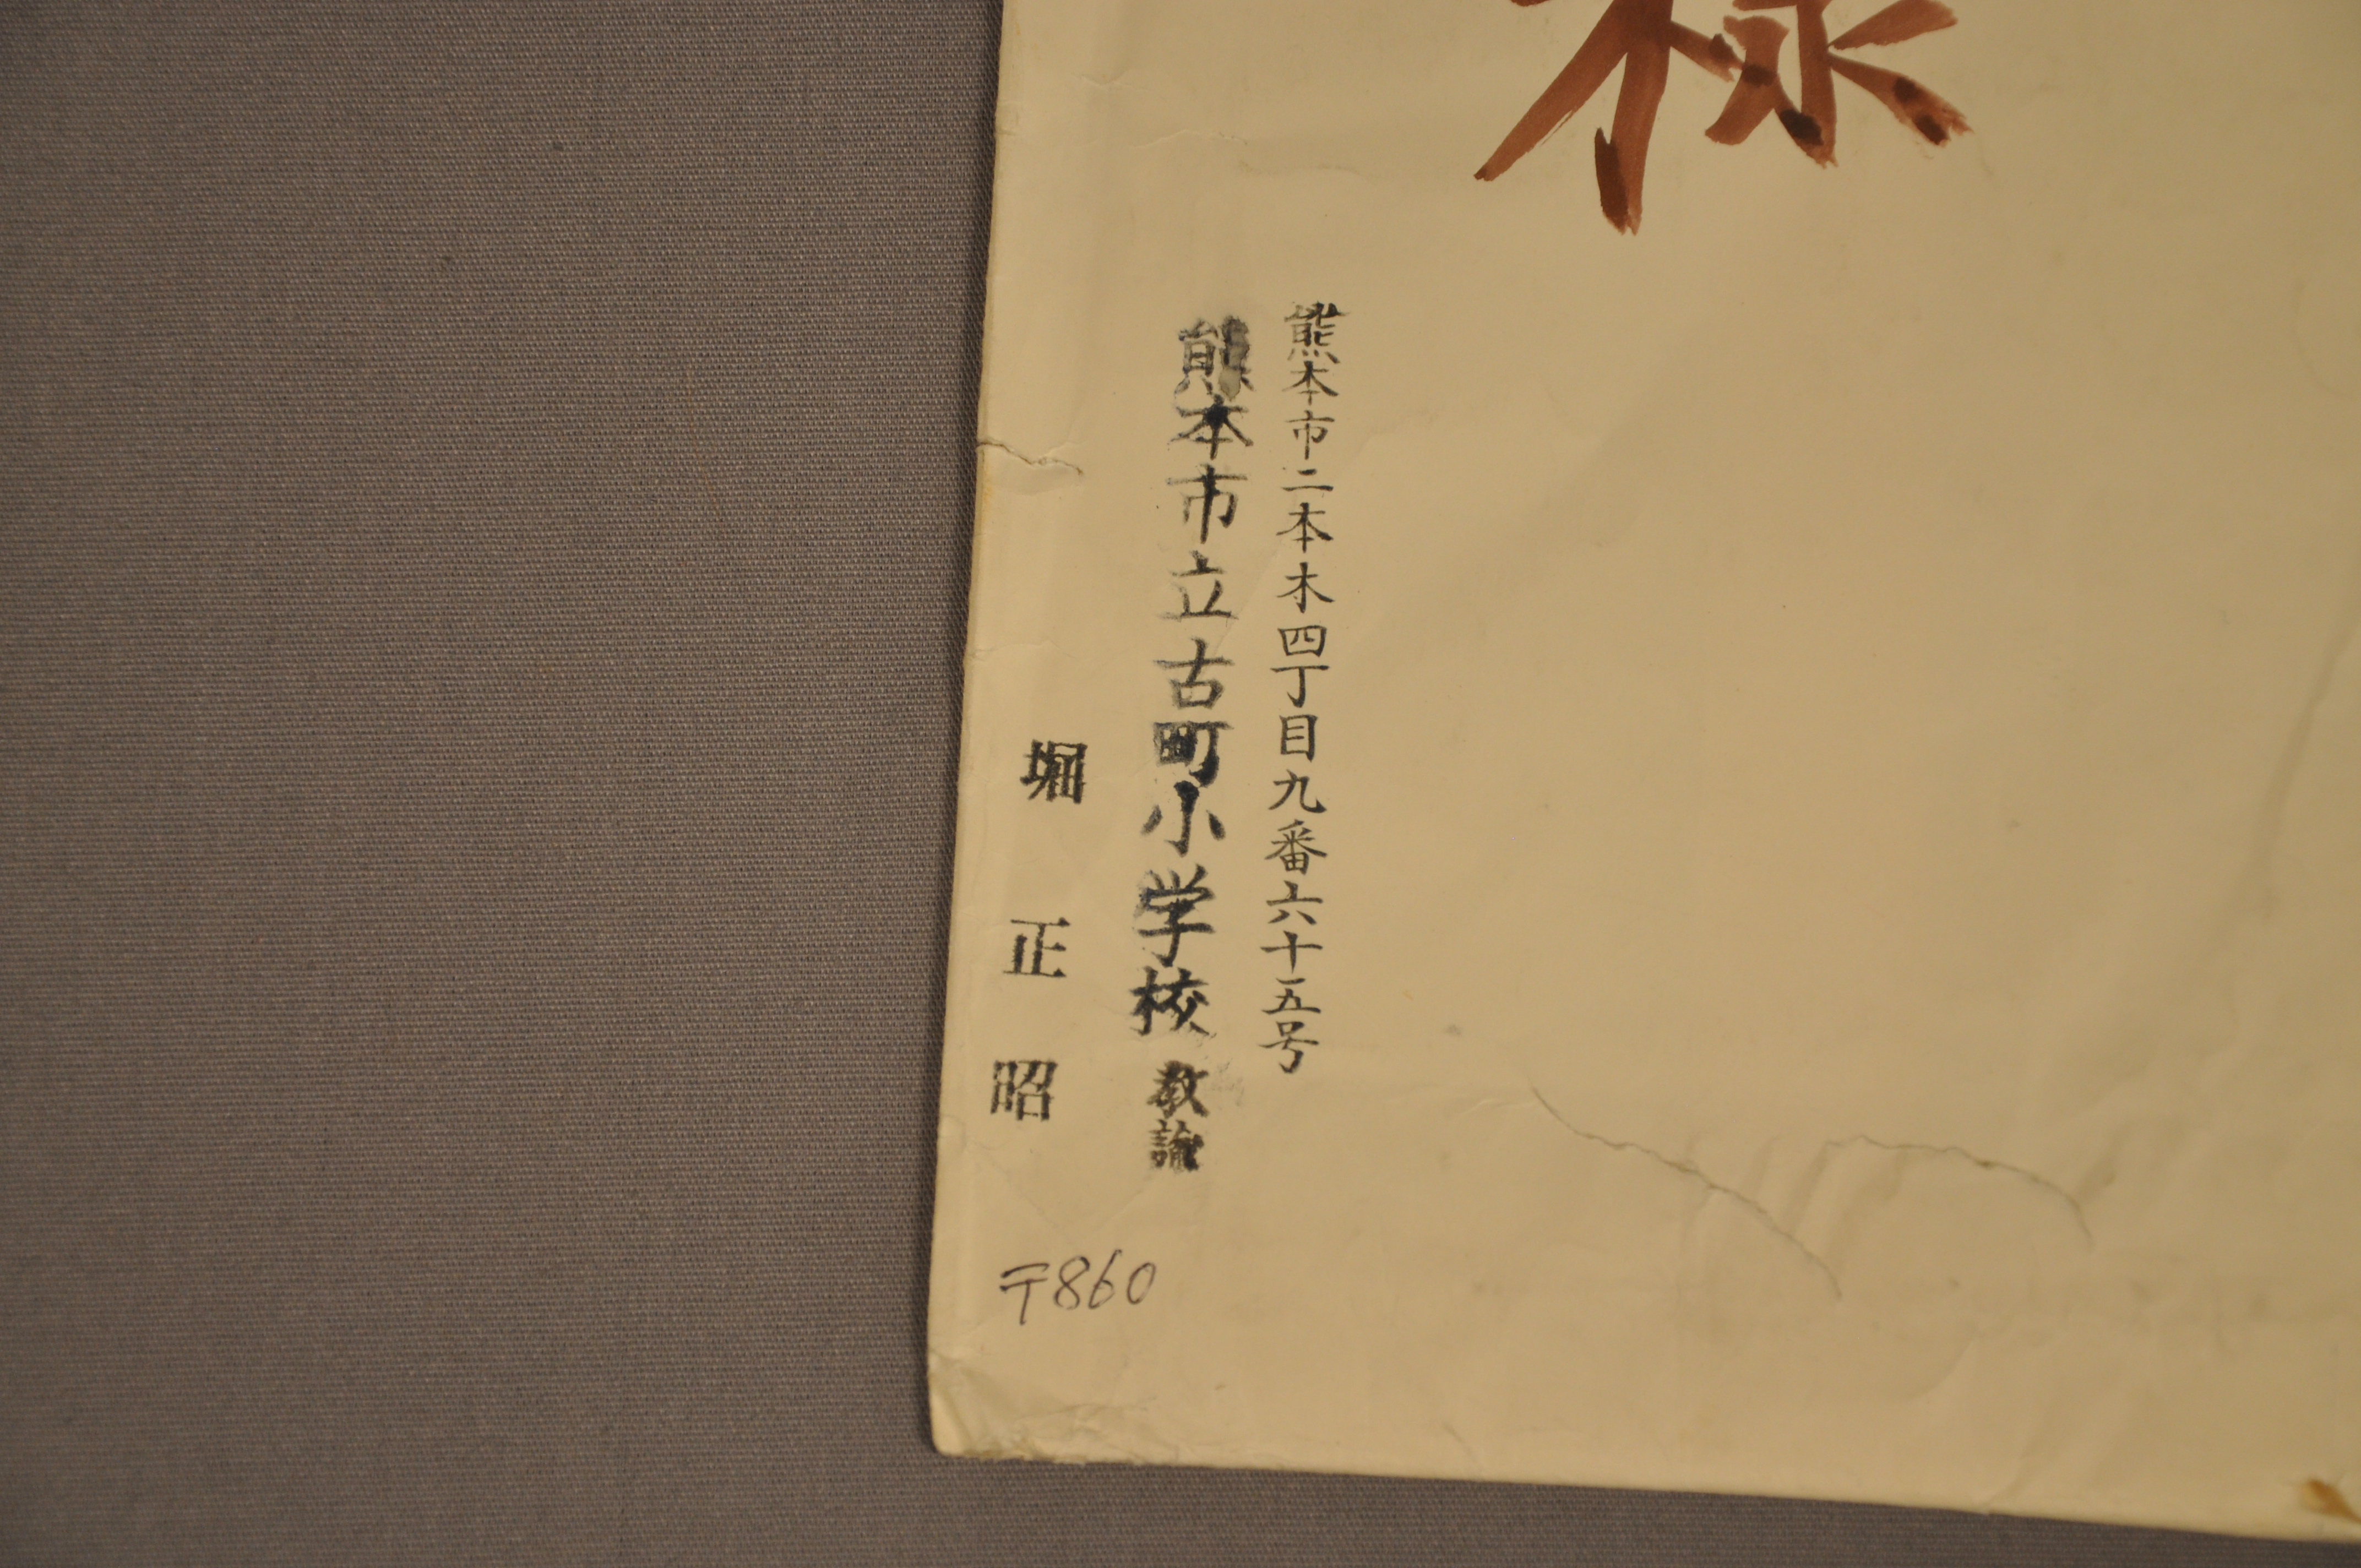 様
熊本市二本木四丁目九番六十五号
熊本市立古町小学校 教諭
堀 正 昭
〒860